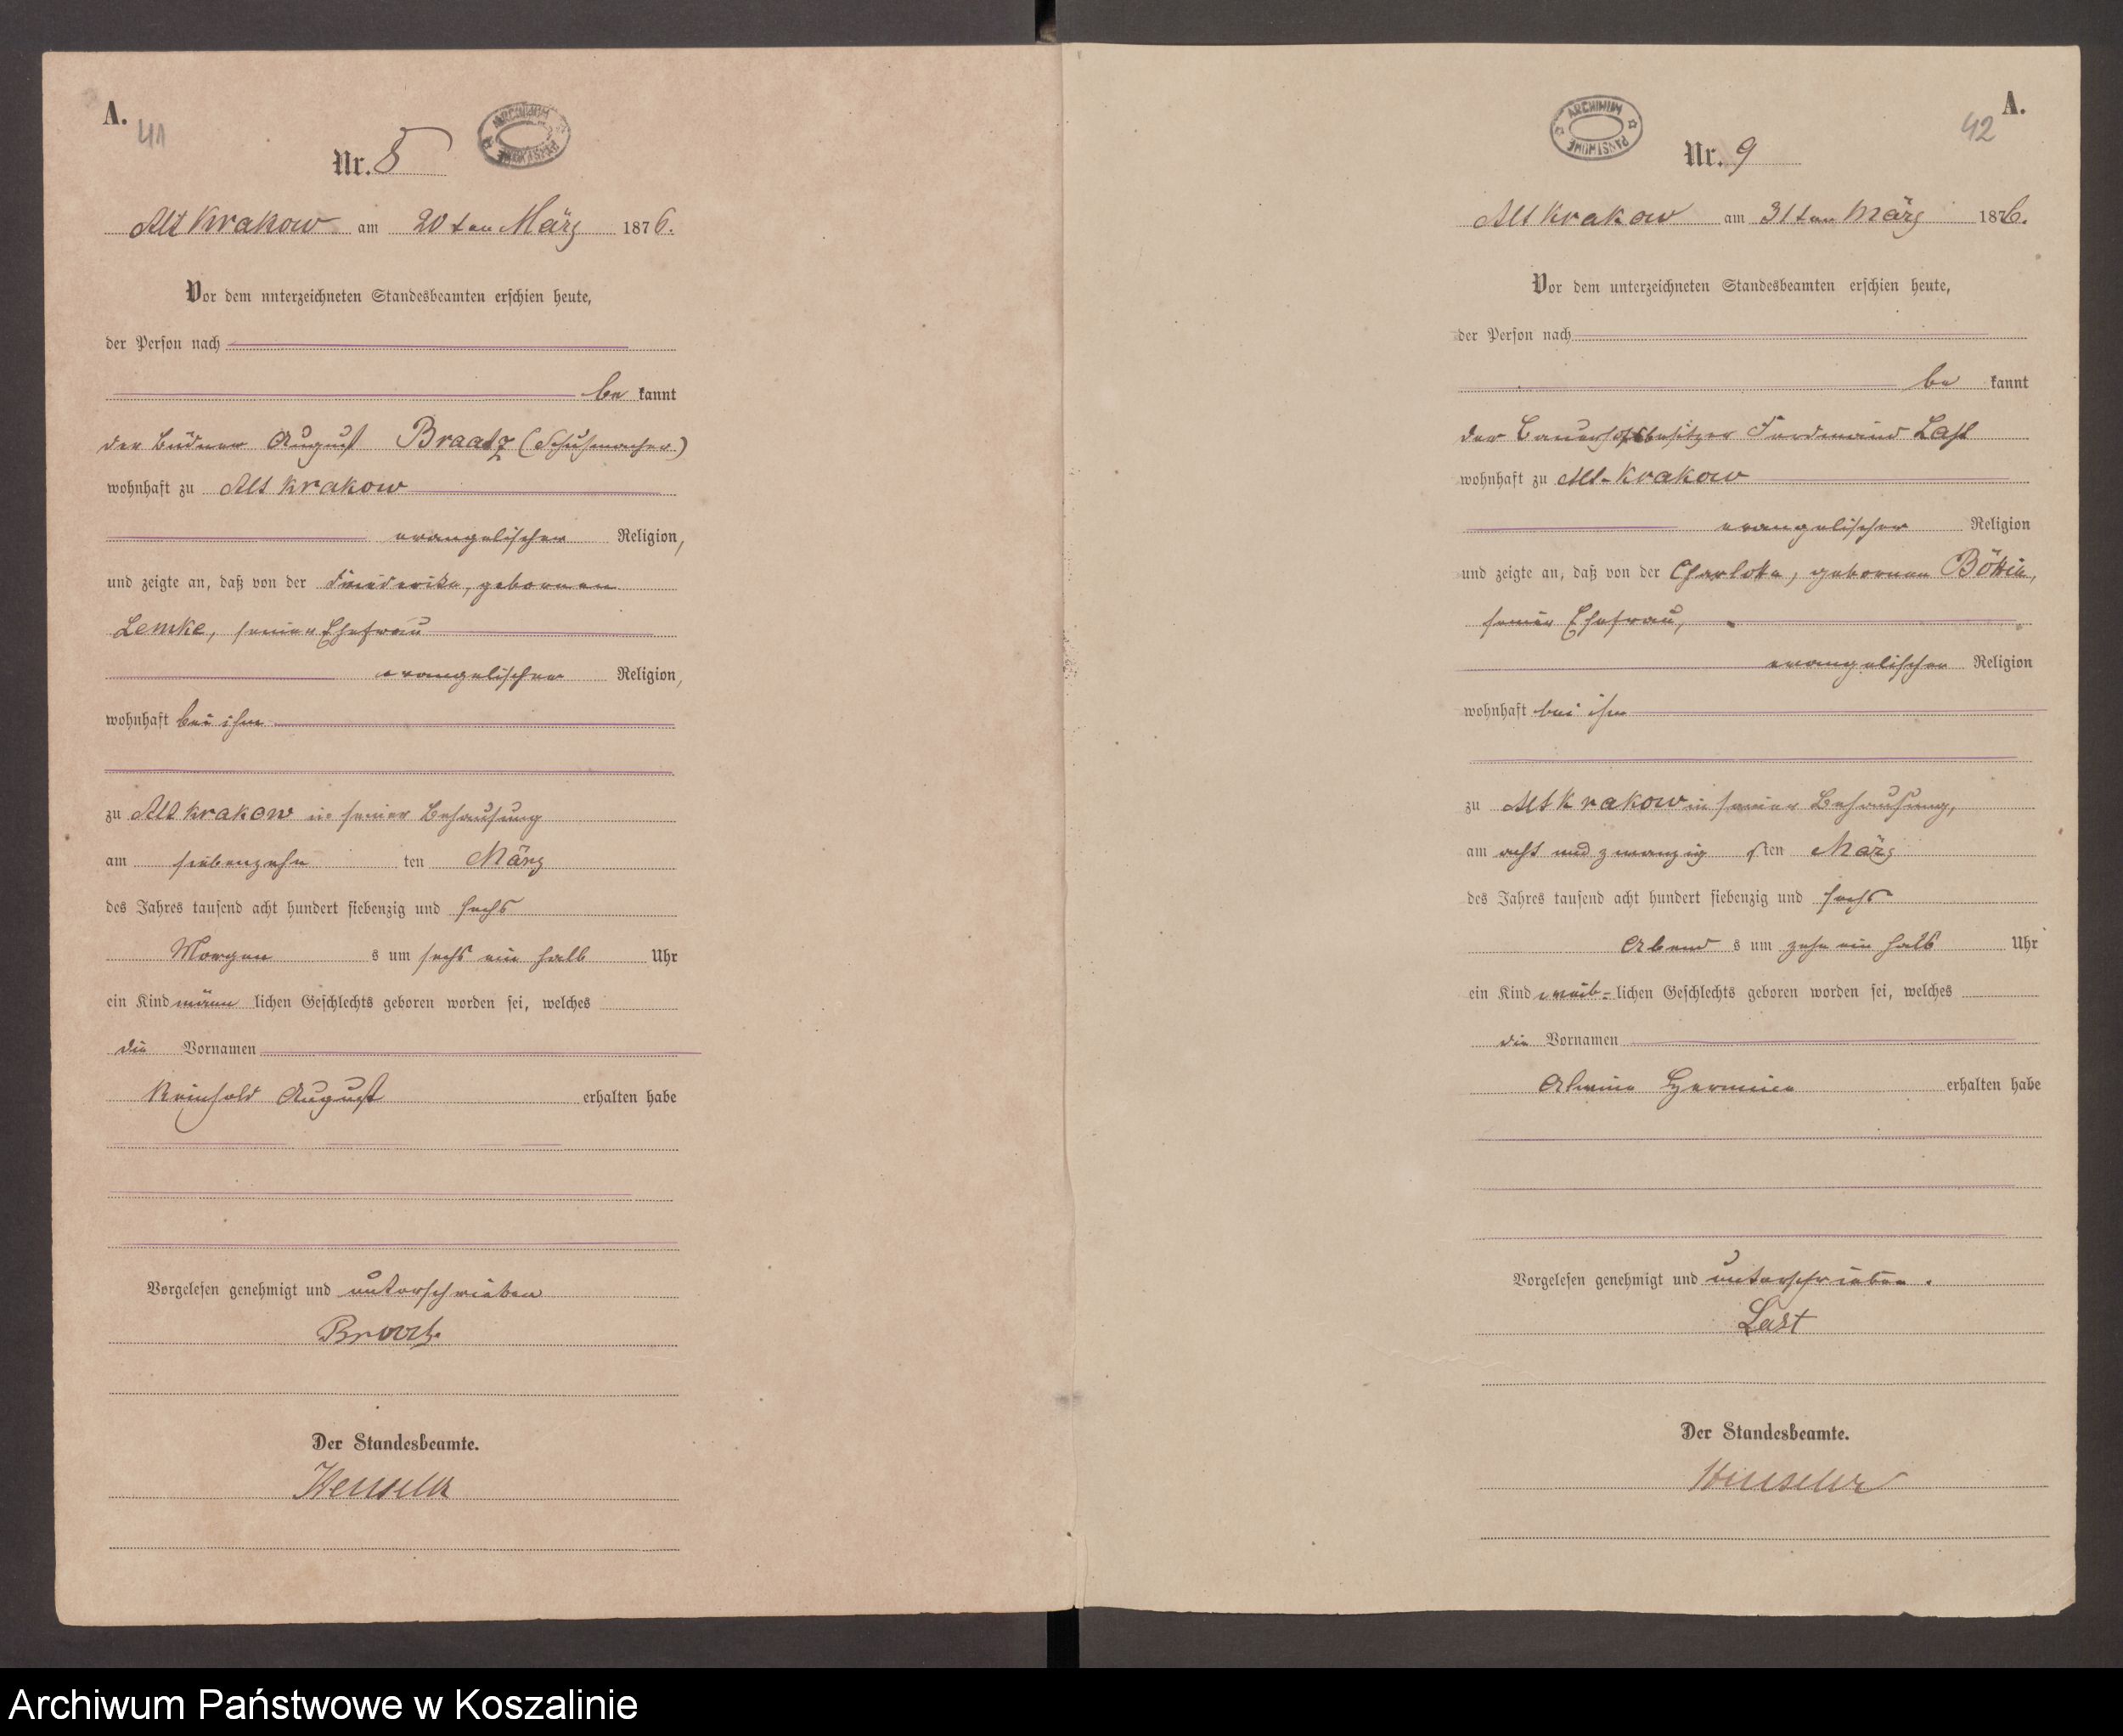 A.
41
ARCHIWUM PAŃSTWOWE
Nr. 8
Alt Krakow am 20ten März 1876.
Vor dem unterzeichneten Standesbeamten erschien heute,
der Person nach
be kannt
der Büdner August Braatz (Schuhmacher)
wohnhaft zu Alt Krakow
evangelischer Religion,
und zeigte an, daß von der Friederike, geborenen
Lemke, seiner Ehefrau
evangelischer Religion,
wohnhaft bei ihm
zu Alt Krakow in seiner Behausung
am siebenzehn ten März
des Jahres tausend acht hundert siebenzig und sechs
Morgen s um sechs ein halb Uhr
ein Kind männ lichen Geschlechts geboren worden sei, welches
die Vornamen
Reinhold August erhalten habe
Vorgelesen genehmigt und unterschrieben
Braatz
Der Standesbeamte.
A.
42
ARCHIWUM PAŃSTWOWE
Nr. 9
Alt Krakow am 31ten März 1876.
Vor dem unterzeichneten Standesbeamten erschien heute,
der Person nach
be kannt
der Bauerhofsbesitzer Ferdinand Last
wohnhaft zu Alt-Krakow
evangelischer Religion
und zeigte an, daß von der Charlotte, geborenen
seiner Ehefrau,
evangelischer Religion
wohnhaft bei ihm
zu Alt Krakow in seiner Behausung,
am acht und zwanzig sten März
des Jahres tausend acht hundert siebenzig und sechs
Abend s um zehn ein halb Uhr
ein Kind weib- lichen Geschlechts geboren worden sei, welches
die Vornamen
Hermine erhalten habe
Vorgelesen genehmigt und unterschrieben.
Last
Der Standesbeamte.
Archiwum Państwowe w Koszalinie